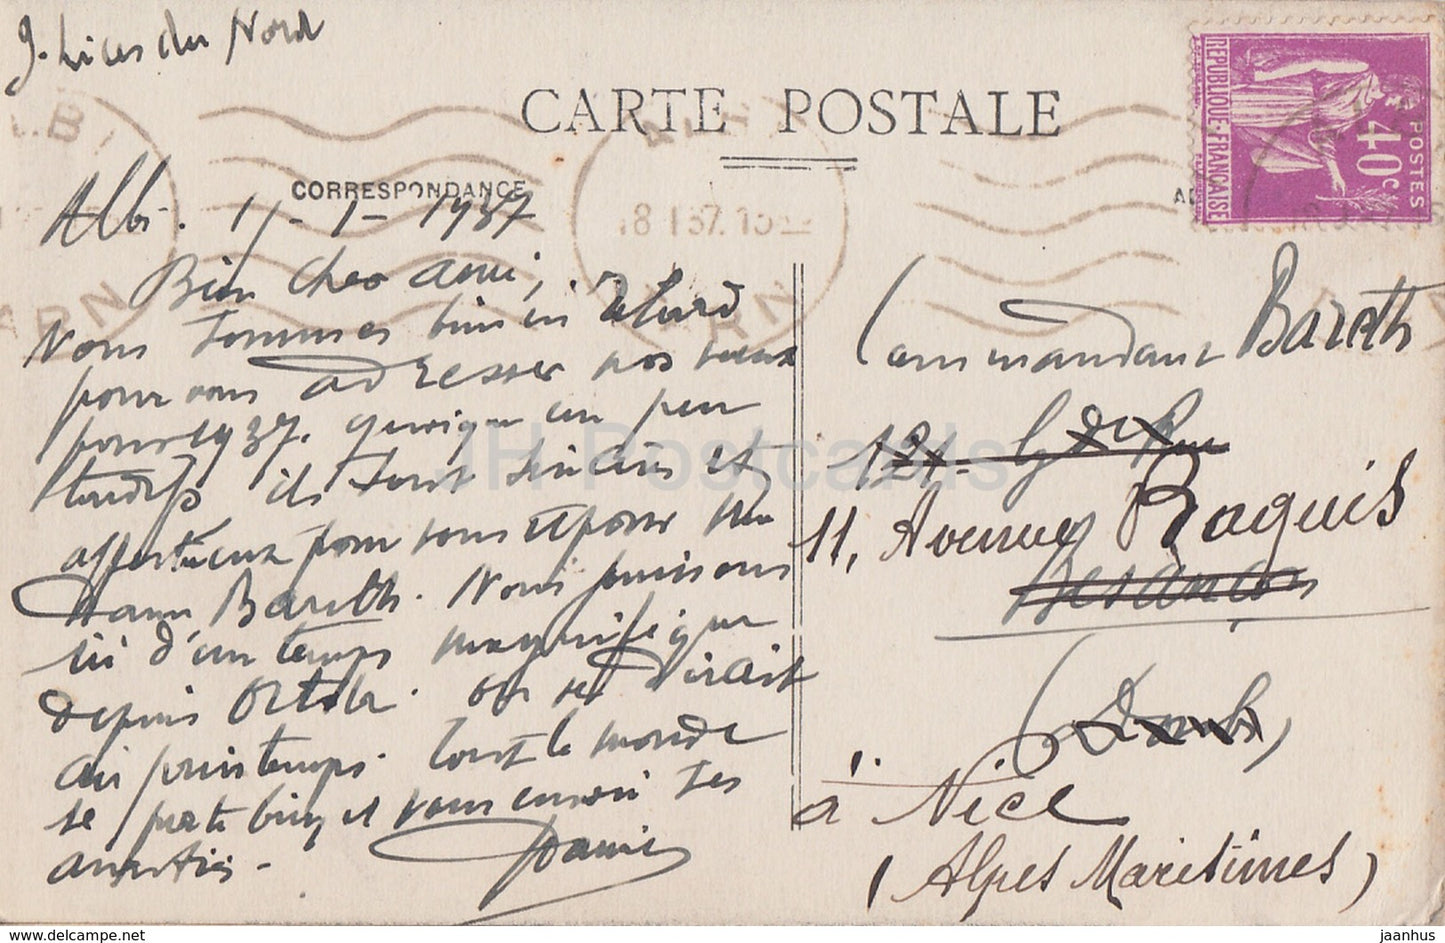 du Nord
CARTE POSTALE
CORRESPONDANCE
REPUBLIQUE-FRANÇAISE
POSTES
40c
ALBI
TARN
18 1 37
Albi. 11-1-1937
Bien cher ami,
Nous sommes bien en retard
pour vous adresser nos vœux
pour 1937. Quoique un peu
tardifs ils sont sincères et
affectueux pour vous et pour
Bareth. Nous jouissons
ici d'un temps magnifique
depuis Octobre. On se dirait
au printemps. Tout le monde
se porte bien et vous envoi ses
amitiés.
Commandant Bareth
11, Avenue Raquis
Besançon
(Doubs)
à Nice
(Alpes Maritimes)
JH Postcards
www.delcampe.net
jaanhus